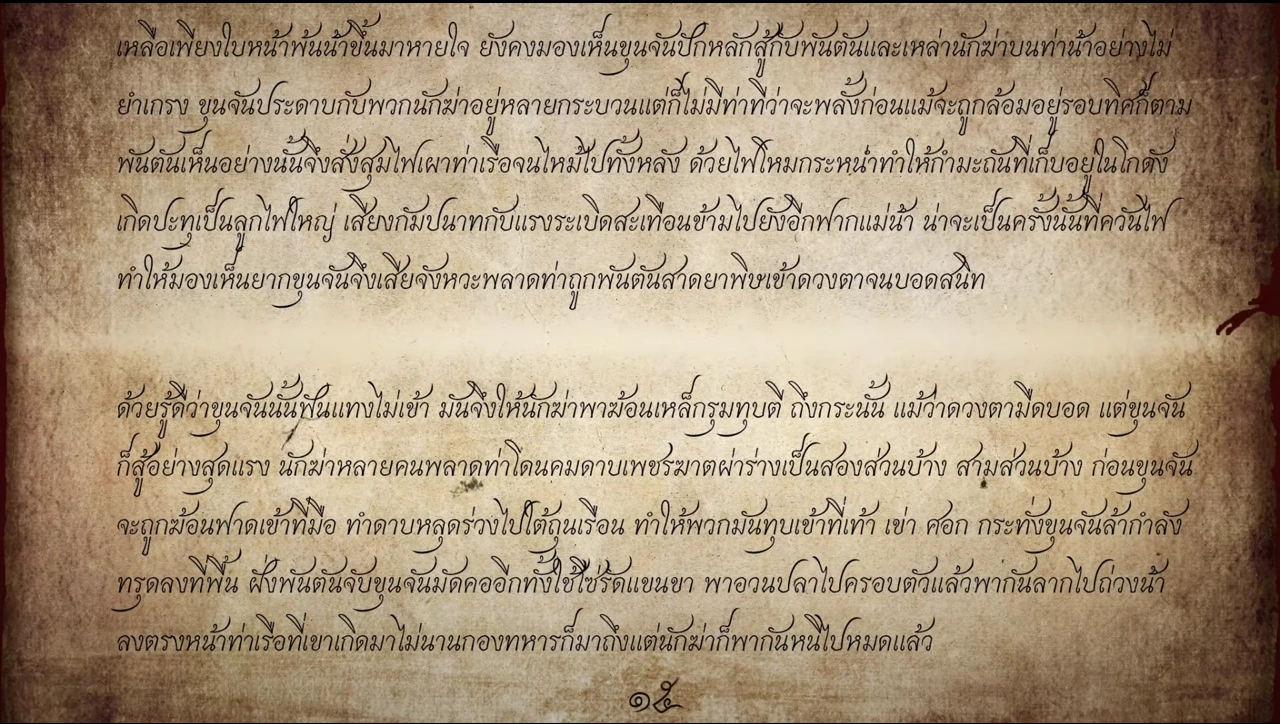 เหลือเพียงใบหน้าพ้นน้ำขึ้นมาหายใจ ยังคงมองเห็นขุนจันปักหลักสู้กับพันตันและเหล่านักฆ่าบนท่าน้ำอย่างไม่
ยำเกรง ขุนจันประดาบกับพวกนักฆ่าอยู่หลายกระบวนแต่ก็ไม่มีท่าทีว่าจะพลั้งก่อนแม้จะถูกล้อมอยู่รอบทิศก็ตาม
พันตันเห็นอย่างนั้นจึงสั่งสุมไฟเผาท่าเรือจนไหม้ไปทั้งหลัง ด้วยไฟโหมกระหน่ำทำให้กำมะถันที่เก็บอยู่ในโกดัง
เกิดปะทุเป็นลูกไฟใหญ่ เสียงกัมปนาทกับแรงระเบิดสะเทือนข้ามไปยังอีกฟากแม่น้ำ น่าจะเป็นครั้งนั้นที่ควันไฟ
ทำให้มองเห็นยากขุนจันจึงเสียจังหวะพลาดท่าถูกพันตันสาดยาพิษเข้าดวงตาจนบอดสนิท
ด้วยรู้ดีว่าขุนจันนั้นฟันแทงไม่เข้า มันจึงให้นักฆ่าพาฆ้อนเหล็กรุมทุบตี ถึงกระนั้น แม้ว่าดวงตามืดบอด แต่ขุนจัน
ก็สู้อย่างสุดแรง นักฆ่าหลายคนพลาดท่าโดนคมดาบเพชรฆาตผ่าร่างเป็นสองส่วนบ้าง สามส่วนบ้าง ก่อนขุนจัน
จะถูกฆ้อนฟาดเข้าที่มือ ทำดาบหลุดร่วงไปใต้ถุนเรือน ทำให้พวกมันทุบเข้าที่เท้า เข่า ศอก กระทั่งขุนจันล้ากำลัง
ทรุดลงที่พื้น ฝั่งพันตันจับขุนจันมัดคออีกทั้งใช้โซ่รัดแขนขา พาอวนปลาไปครอบตัวแล้วพากันลากไปถ่วงน้ำ
ลงตรงหน้าท่าเรือที่เขาเกิดมาไม่นานกองทหารก็มาถึงแต่นักฆ่าก็พากันหนีไปหมดแล้ว
๑๕